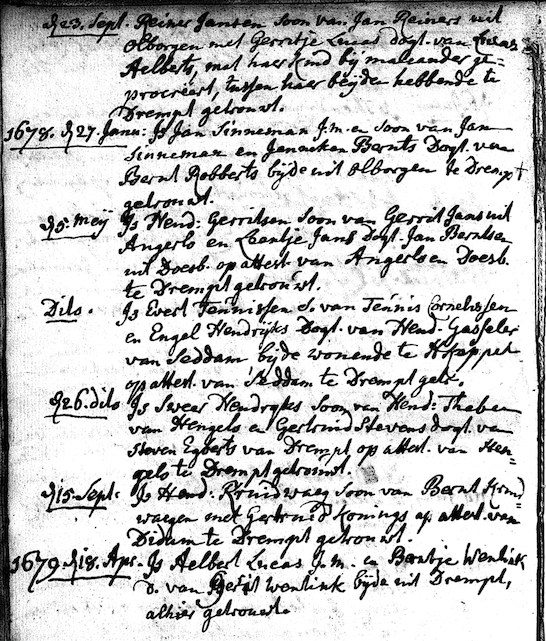 d 23. Sept. Reiner Jansen soon van Jan Reiners uit
Olborgen met Gerritje Lucas dogt. van Lucas
Aelberts, met haer kind bij malcander ge=
procreëert, tussen haer beÿden hebbende te
Drempt getrouwt.
1678. d 27. Janu: Is Jan Sinneman J.m. en soon van Jan
Sinneman en Jenneken Bernts Dogt. van
Bernt Robberts bÿde uit Olborgen te Dremp t
getrouwt.
d 5. Meÿ Is Hend: Gerritsen soon van Gerrit Jans uit
Angerlo en Leentje Jans Dogt. Jan Berntsen
uit Doesb. op attest. van Angerlo en Doesb.
te Drempt getrouwt.
Dito. Is Evert Tennissen S. van Tennis Cornelissen
en Engel Hendrijks Dogt. van Hend. Gasseler
van Seddam bÿde wonende te
op attest. van Seddam te Drempt getr.
d 26. dito Is Sweer Hendrijks soon van Hend: Theben
van Hengelo en Gertruid Stevens dogt. van
Steven Egberts van Drempt op attest. van Hen=
gelo te Drempt getrouwt.
d 15. Sept. Is Hend: Kruidwaeg soon van Bernt Kruid
waegen met Gertruid Konings op attest. van
Didam te Drempt getrouwt.
1679 d 18. Apr. Is Aelbert Lucas J.m. en Berntje Wenlink
d. van Gerrit Wenlink bÿde uit Drempt,
alhier getrouwt.